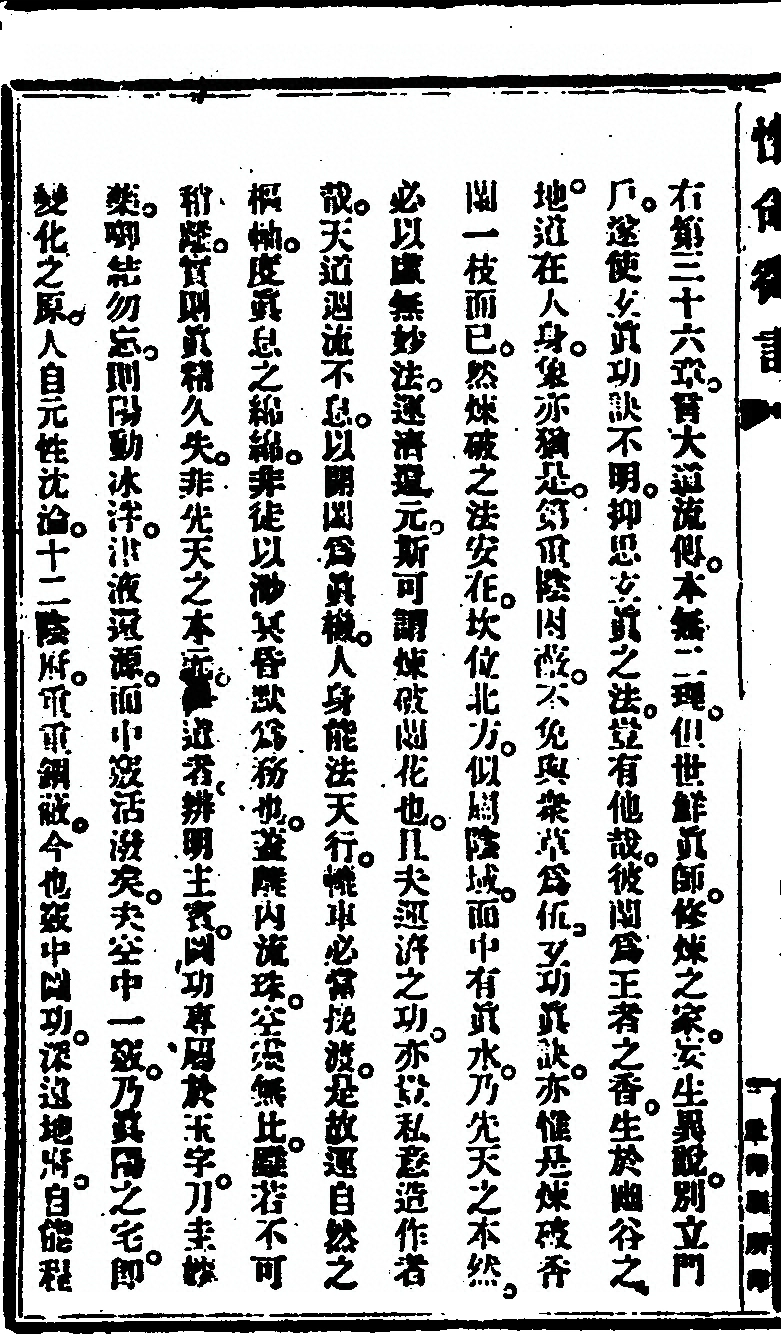 右第三十六章。言大道流傳。本無二理。但世鮮眞師。修煉之家。妄生異說。別立門
戶。遂使玄眞功訣不明。抑思玄眞之法。豈有他哉。彼蘭爲王者之香。生於幽谷之
地。道在人身。象亦猶是。第重陰內蔽。不免與衆草爲伍。玄功眞訣。亦惟是煉破香
蘭一枝而已。然煉破之法安在。坎位北方。似屬陰域。而中有眞水。乃先天之本然。
必以虛無妙法。運濟還元。斯可謂煉破蘭花也。且夫運濟之功。亦豈私意造作者
哉。天道週流不息。以開闔爲眞機。人身能法天行。轆車必當挽渡。是故運自然之
樞軸。度眞息之綿綿。非徒以渺冥昏默爲務也。蓋離內流珠。空虛無比。雖若不可
稍離。實則眞精久失。非先天之本 道者辨明主賓。闔功專屬於玉字。刀圭
藥 結勿忘。則陽動冰泮。津液還源。而中竅活潑矣。夫空中一竅。乃眞陽之宅。即
變化之原。人自元性沈淪。十二陰府。重重錮蔽。今也竅中闔功。深邃地府。自能程
性命